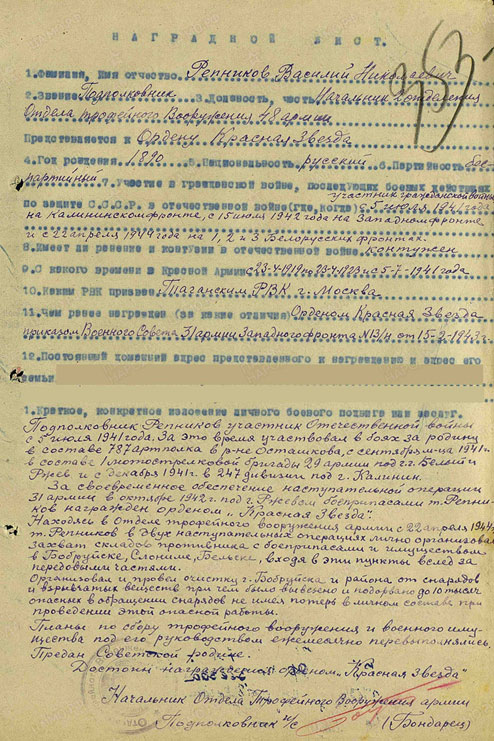 353
НАГРАДНОЙ ЛИСТ.
1. Фамилия, имя отчество. Репников Василий Николаевич
2. Звание Подполковник 3. Должность, часть Начальник отделения
Отдела трофейного Вооружения 48 армии
Представляется к Ордену Красная Звезда
4. Год рождения 1890 5. Национальность русский 6. Партийность бес-
партийный 7. Участие в гражданской войне, последующих боевых действиях
участник гражданской войны
по защите С.С.С.Р. в отечественной войне (где, когда) с 5 июля 1941 года
на Калининском фронте, с 15 июля 1942 года на Западном фронте
и с 22 апреля 1944 года на 1, 2 и 3 Белорусских фронтах.
8. Имеет ли ранение и контузии в отечественной войне контужен
9. С какого времени в Красной Армии с 23-4-1919 по 23-4-1923 и с 5-7-1941 года
10. Каким РВК призван Таганским РВК г. Москва
11. Чем ранее награжден (за какие отличия) Орденом Красная Звезда
приказом Военного Совета 31 армии Западного фронта от 15-2-1943 г.
12. Постоянный домашний адрес представленного к награждению и адрес его
семьи
1. Краткое, конкретное изложение личного боевого подвига или заслуг.
Подполковник Репников участник Отечественной войны
с 5 июля 1941 года. За это время участвовал в боях за родину
в составе 787 артполка в р-не Осташкова, с сентября м-ца 1941 г.
в составе 1 мотострелковой бригады 29 армии под г.г. Белый и
Ржев и с декабря 1941 г. в 247 дивизии под г. Калинин.
За своевременное обеспечение наступательной операции
31 армии в октябре 1942 г. под г. Ржевом боеприпасами т. Репни-
ков награжден орденом „Красная Звезда".
Находясь в Отделе трофейного вооружения армии с 22 апреля 1944 г.
т. Репников в двух наступательных операциях лично организовал
захват складов противника с боеприпасами и имуществом
в Бобруйске, Слониме, Бельске, входя в эти пункты вслед за
передовыми частями.
Организовал и провел очистку г. Бобруйска и района от снарядов
и взрывчатых веществ при чем было вывезено и подорвано до 10 тысяч
опасных в обращении снарядов не имея потерь в личном составе при
проведении этой опасной работы.
Планы по сбору трофейного вооружения и военного иму-
щества под его руководством ежемесячно перевыполнялись.
Предан Советской родине.
Достоин награждения орденом „Красная Звезда"
Начальник Отдела Трофейного Вооружения армии
Подполковник и/с (Бондарец)